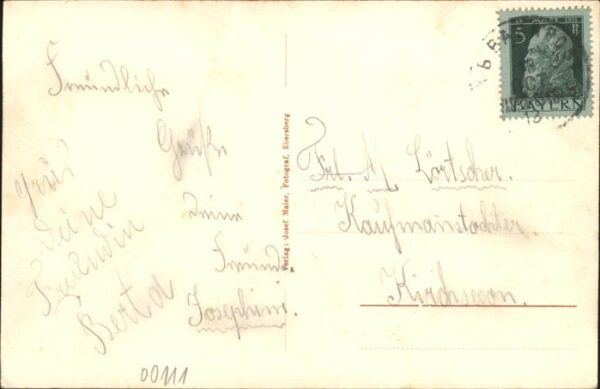 Freundliche
Grüße
deine
Freund.
Josephine.
Grus
deine
Freundin
Berta
00111
Verlag: Josef Maier, Fotograf, Ebersberg
5
BAYERN
13
Frl. M. Lörtscher.
Kaufmanstochter.
Kirchseeon.